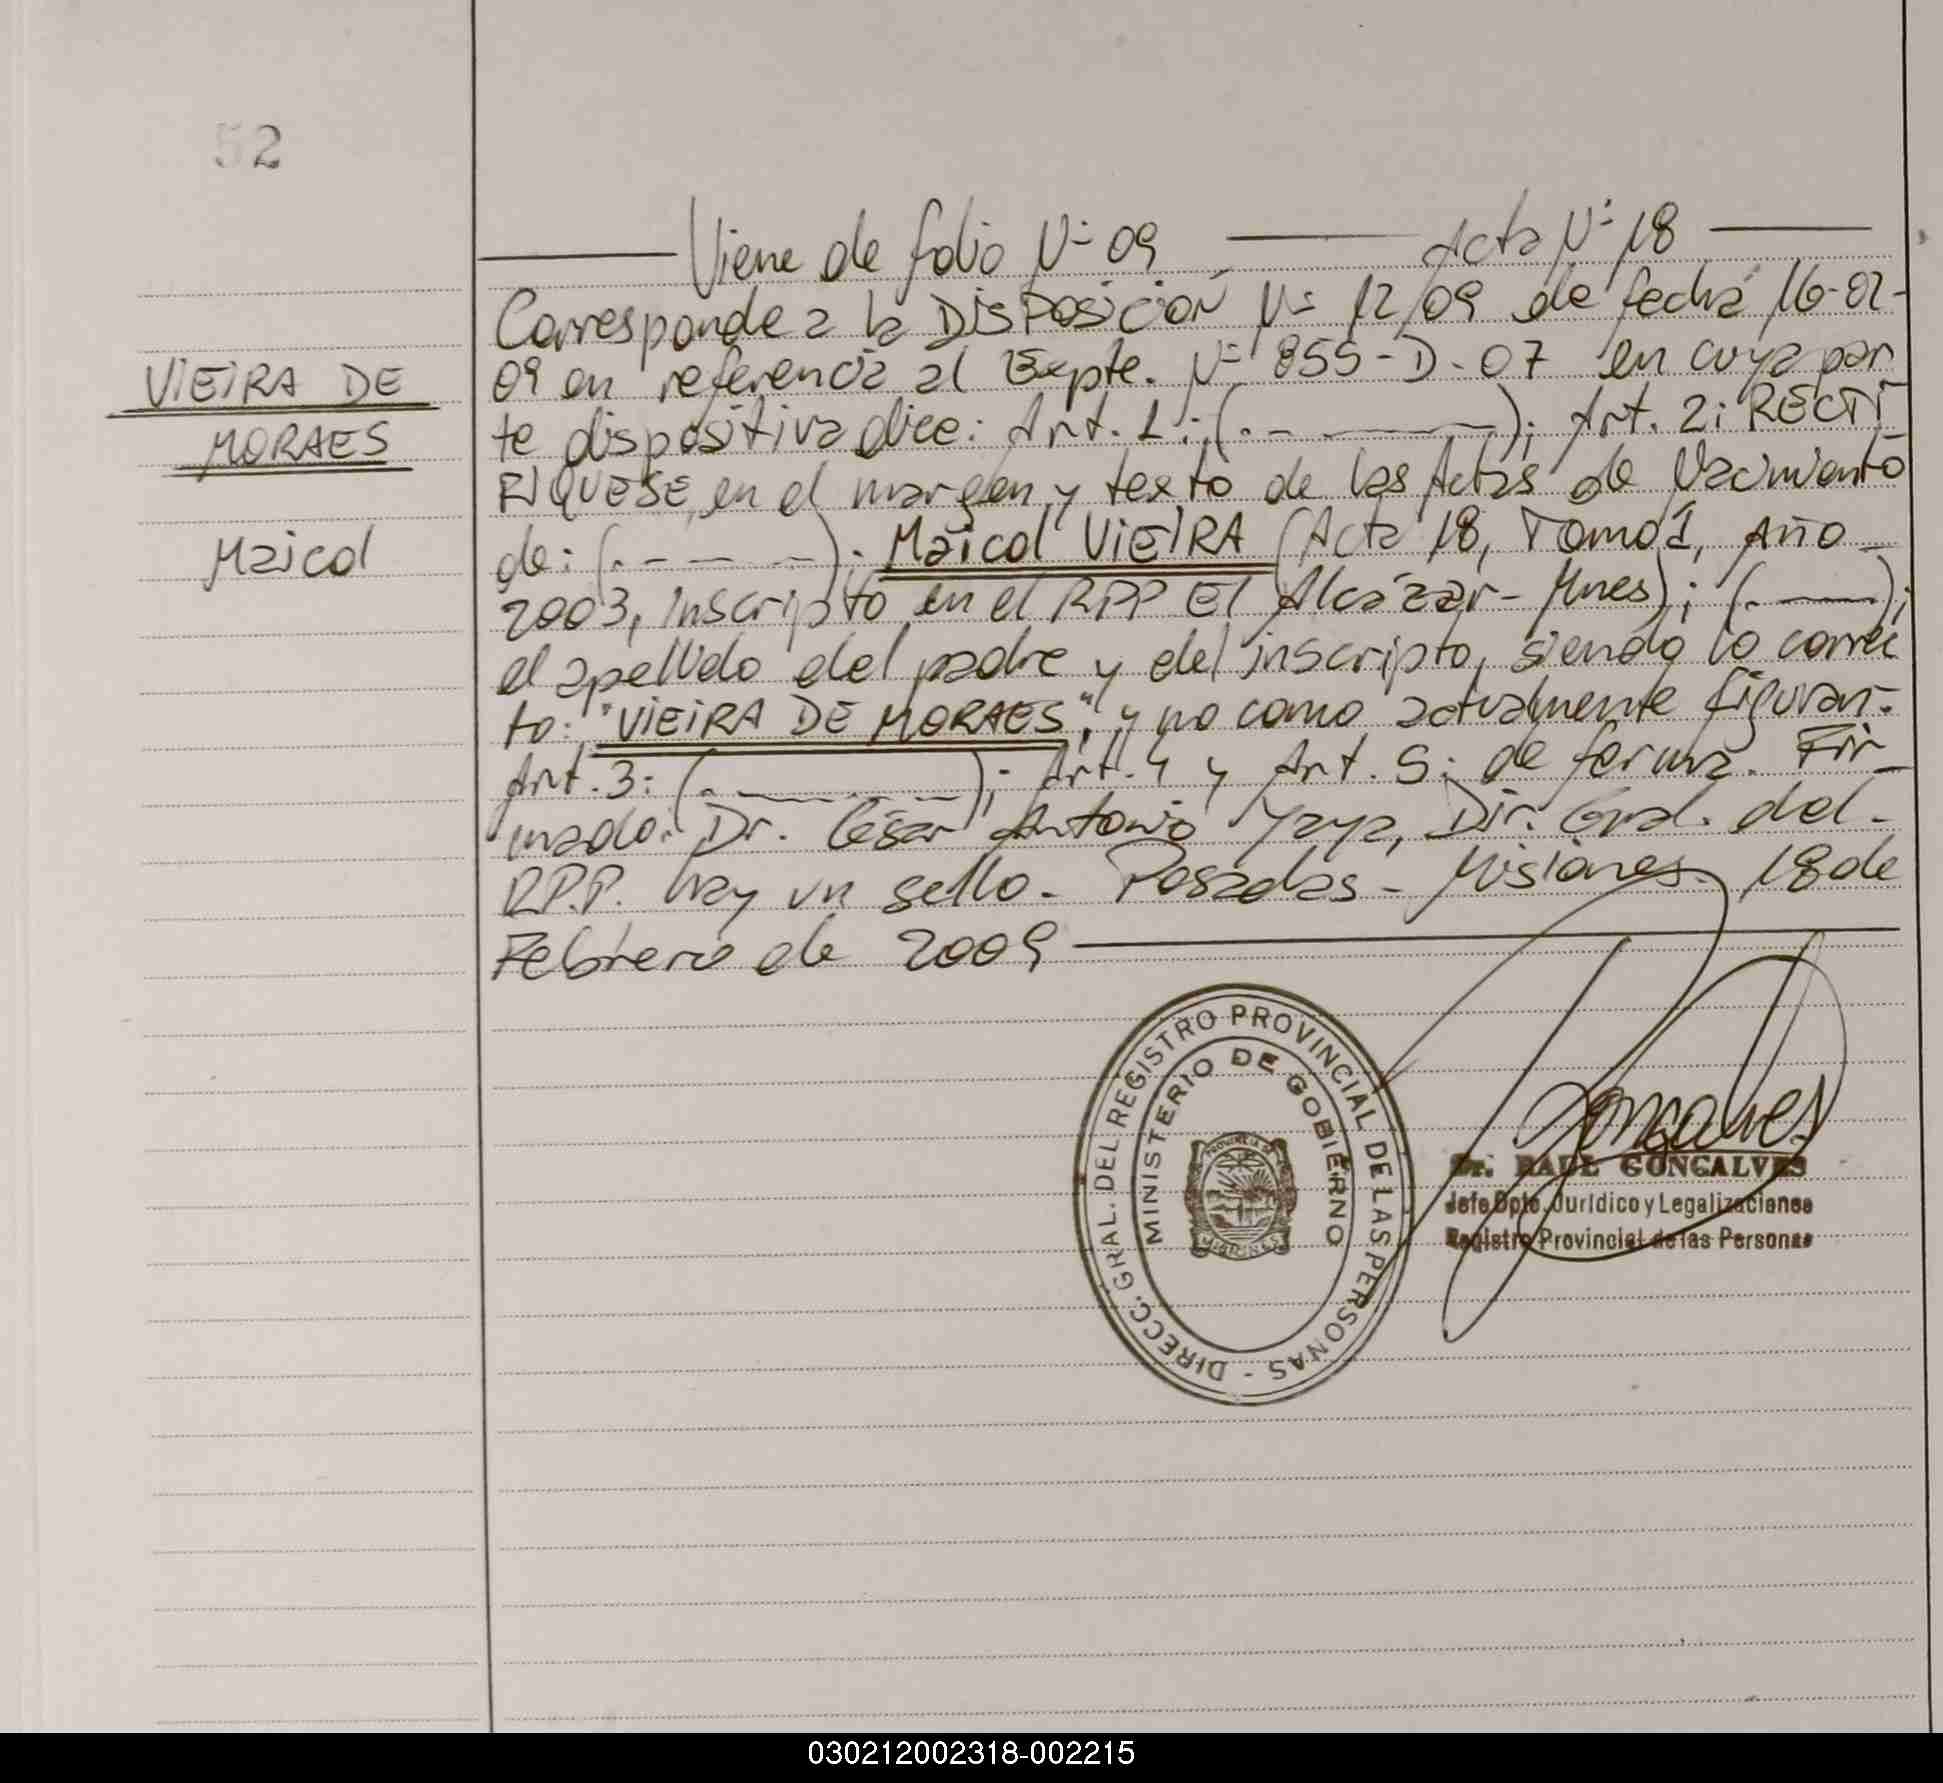 52
Viene de folio Nº 09 Acta Nº 18
Corresponde a la DISPOSICIÓN Nº 12/09 de fecha 16-02-
09 en referencia al Expte. Nº 855-D-07 en cuya par
te dispositiva dice: Art. 1: (.- ———); Art. 2: RECTI
FIQUESE, en el margen y texto de las Actas de Nacimiento
de: (.- - - -). Maicol VIEIRA (Acta 18, Tomo 1, Año
2003, inscripto en el RPP El Alcázar - Mnes); (.——);
el apellido del padre y del inscripto, siendo lo correc
to: "VIEIRA DE MORAES", y no como actualmente figuran.-
Art. 3: (.———); Art. 4 y Art. 5: de forma. Fir
mado: Dr. César Antonio Yaya, Dir. Gral. del-
R.P.P. hay un sello - Posadas - Misiones. 18 de
Febrero de 2009
VIEIRA DE
MORAES
Maicol
DIRECC. GRAL. DEL REGISTRO PROVINCIAL DE LAS PERSONAS -
MINISTERIO DE GOBIERNO
PROVINCIA DE
MISIONES
Goncalves
Sr. RAUL GONCALVES
Jefe Dpto. Jurídico y Legalizaciones
Registro Provincial de las Personas
030212002318-002215